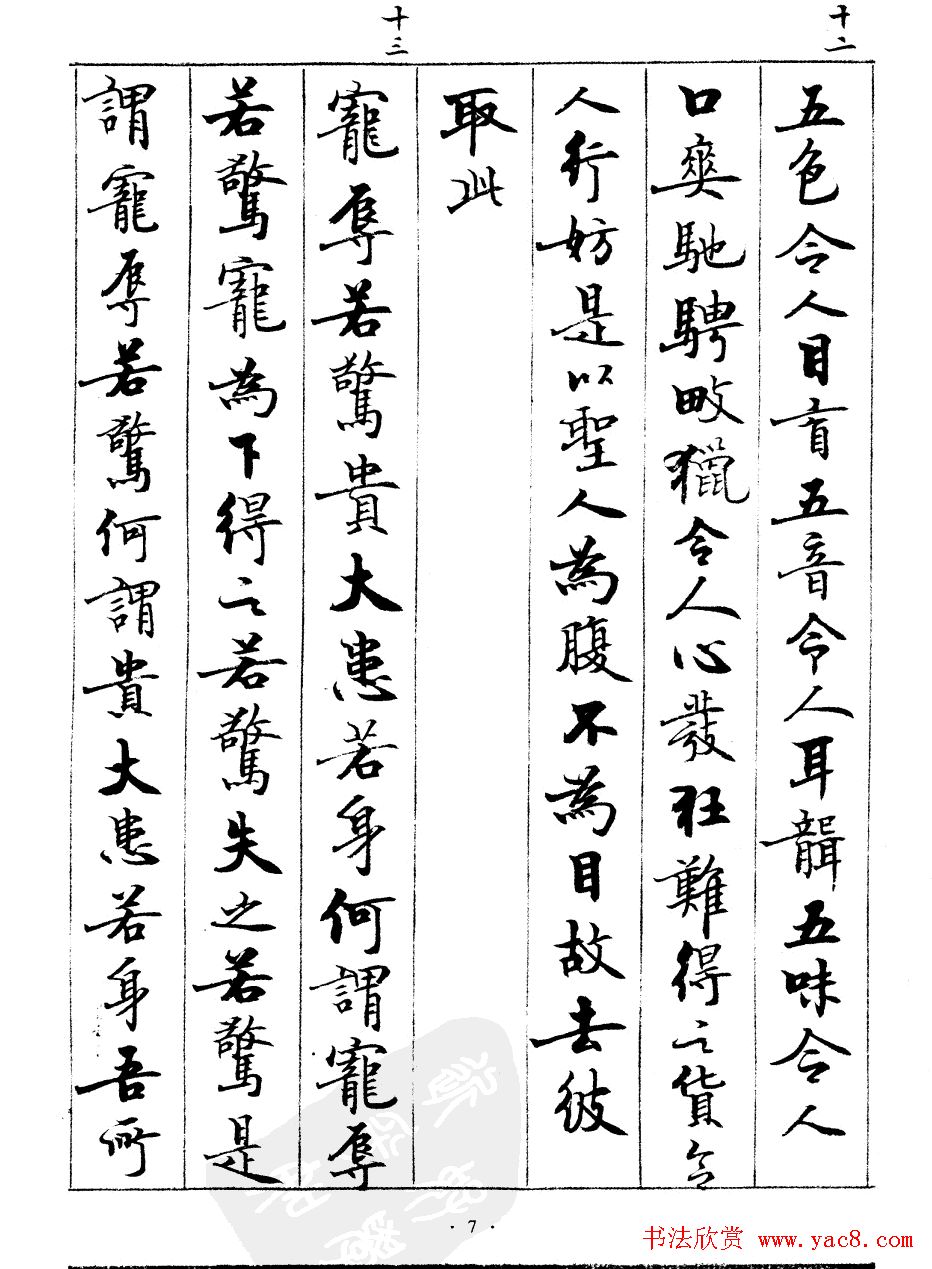 十二
五色令人目盲五音令人耳聾五味令人
口爽馳騁畋獵令人心發狂難得之貨令
人行妨是以聖人為腹不為目故去彼
取此
十三
寵辱若驚貴大患若身何謂寵辱
若驚寵為下得之若驚失之若驚是
謂寵辱若驚何謂貴大患若身吾所
· 7 ·
书法欣赏 www.yac8.com